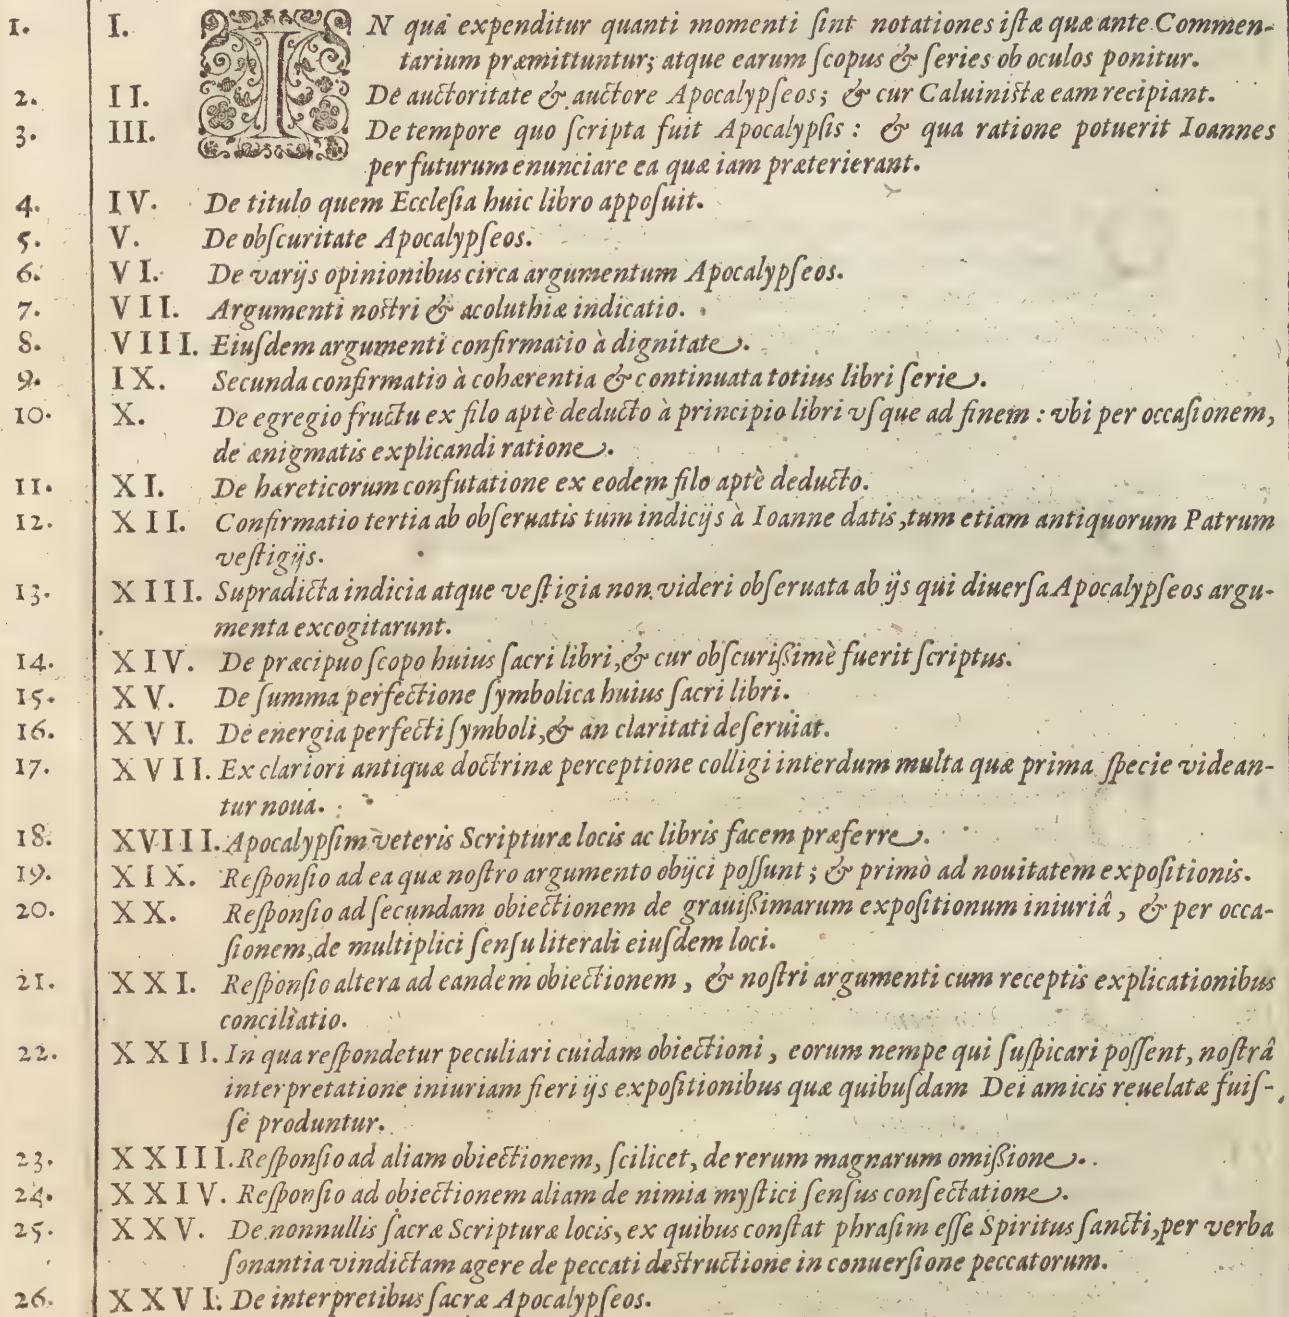 1. I. IN quâ expenditur quanti momenti ſint notationes iſtæ quæ ante Commen-
tarium præmittuntur; atque earum ſcopus & ſeries ob oculos ponitur.
2. II. De auctoritate & auctore Apocalypſeos; & cur Caluiniſtæ eam recipiant.
3. III. De tempore quo ſcripta fuit Apocalypſis: & qua ratione potuerit Ioannes
per futurum enunciare ea quæ iam præterierant.
4. IV. De titulo quem Eccleſia huic libro appoſuit.
5. V. De obſcuritate Apocalypſeos.
6. VI. De varijs opinionibus circa argumentum Apocalypſeos.
7. VII. Argumenti noſtri & acoluthiæ indicatio.
8. VIII. Eiuſdem argumenti confirmatio à dignitate.
9. IX. Secunda confirmatio à cohærentia & continuata totius libri ſerie.
10. X. De egregio fructu ex filo aptè deducto à principio libri vſque ad finem: vbi per occaſionem,
de ænigmatis explicandi ratione.
11. XI. De hæreticorum confutatione ex eodem filo aptè deducto.
12. XII. Confirmatio tertia ab obſeruatis tum indicijs à Ioanne datis, tum etiam antiquorum Patrum
veſtigijs.
13. XIII. Supradicta indicia atque veſtigia non videri obſeruata ab ijs qui diuerſa Apocalypſeos argu-
menta excogitarunt.
14. XIV. De præcipuo ſcopo huius ſacri libri, & cur obſcurißimè fuerit ſcriptus.
15. XV. De ſumma perfectione ſymbolica huius ſacri libri.
16. XVI. De energia perfecti ſymboli, & an claritati deſeruiat.
17. XVII. Ex clariori antiquæ doctrinæ perceptione colligi interdum multa quæ prima ſpecie videan-
tur noua.
18. XVIII. Apocalypſim veteris Scripturæ locis ac libris facem præferre.
19. XIX. Reſponſio ad ea quæ noſtro argumento obijci poſſunt; & primò ad nouitatem expoſitionis.
20. XX. Reſponſio ad ſecundam obiectionem de grauißimarum expoſitionum iniuriâ, & per occa-
ſionem, de multiplici ſenſu literali eiuſdem loci.
21. XXI. Reſponſio altera ad eandem obiectionem, & noſtri argumenti cum receptis explicationibus
conciliatio.
22. XXII. In qua reſpondetur peculiari cuidam obiectioni, eorum nempe qui ſuſpicari poſſent, noſtrâ
interpretatione iniuriam fieri ijs expoſitionibus quæ quibuſdam Dei amicis reuelatæ fuiſ-
ſe produntur.
23. XXIII. Reſponſio ad aliam obiectionem, ſcilicet, de rerum magnarum omißione.
24. XXIV. Reſponſio ad obiectionem aliam de nimia myſtici ſenſus conſectatione.
25. XXV. De nonnullis ſacræ Scripturæ locis, ex quibus conſtat phraſim eſſe Spiritus ſancti, per verba
ſonantia vindictam agere de peccati deſtructione in conuerſione peccatorum.
26. XXVI. De interpretibus ſacræ Apocalypſeos.